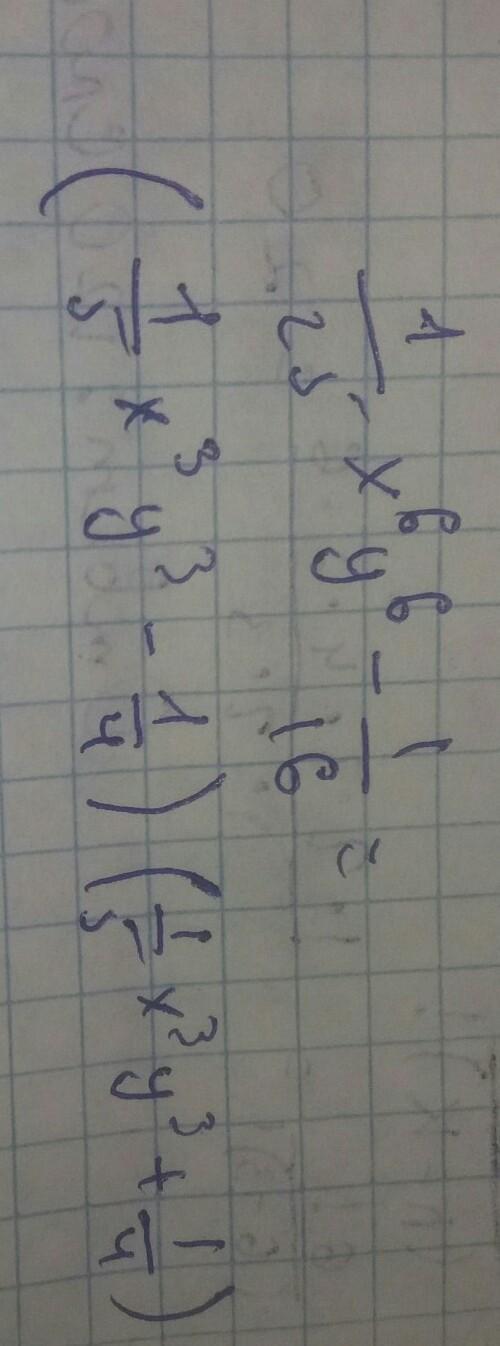 1/25 x⁶y⁶ - 1/16 =
(1/5 x³y³ - 1/4) (1/5 x³y³ + 1/4)